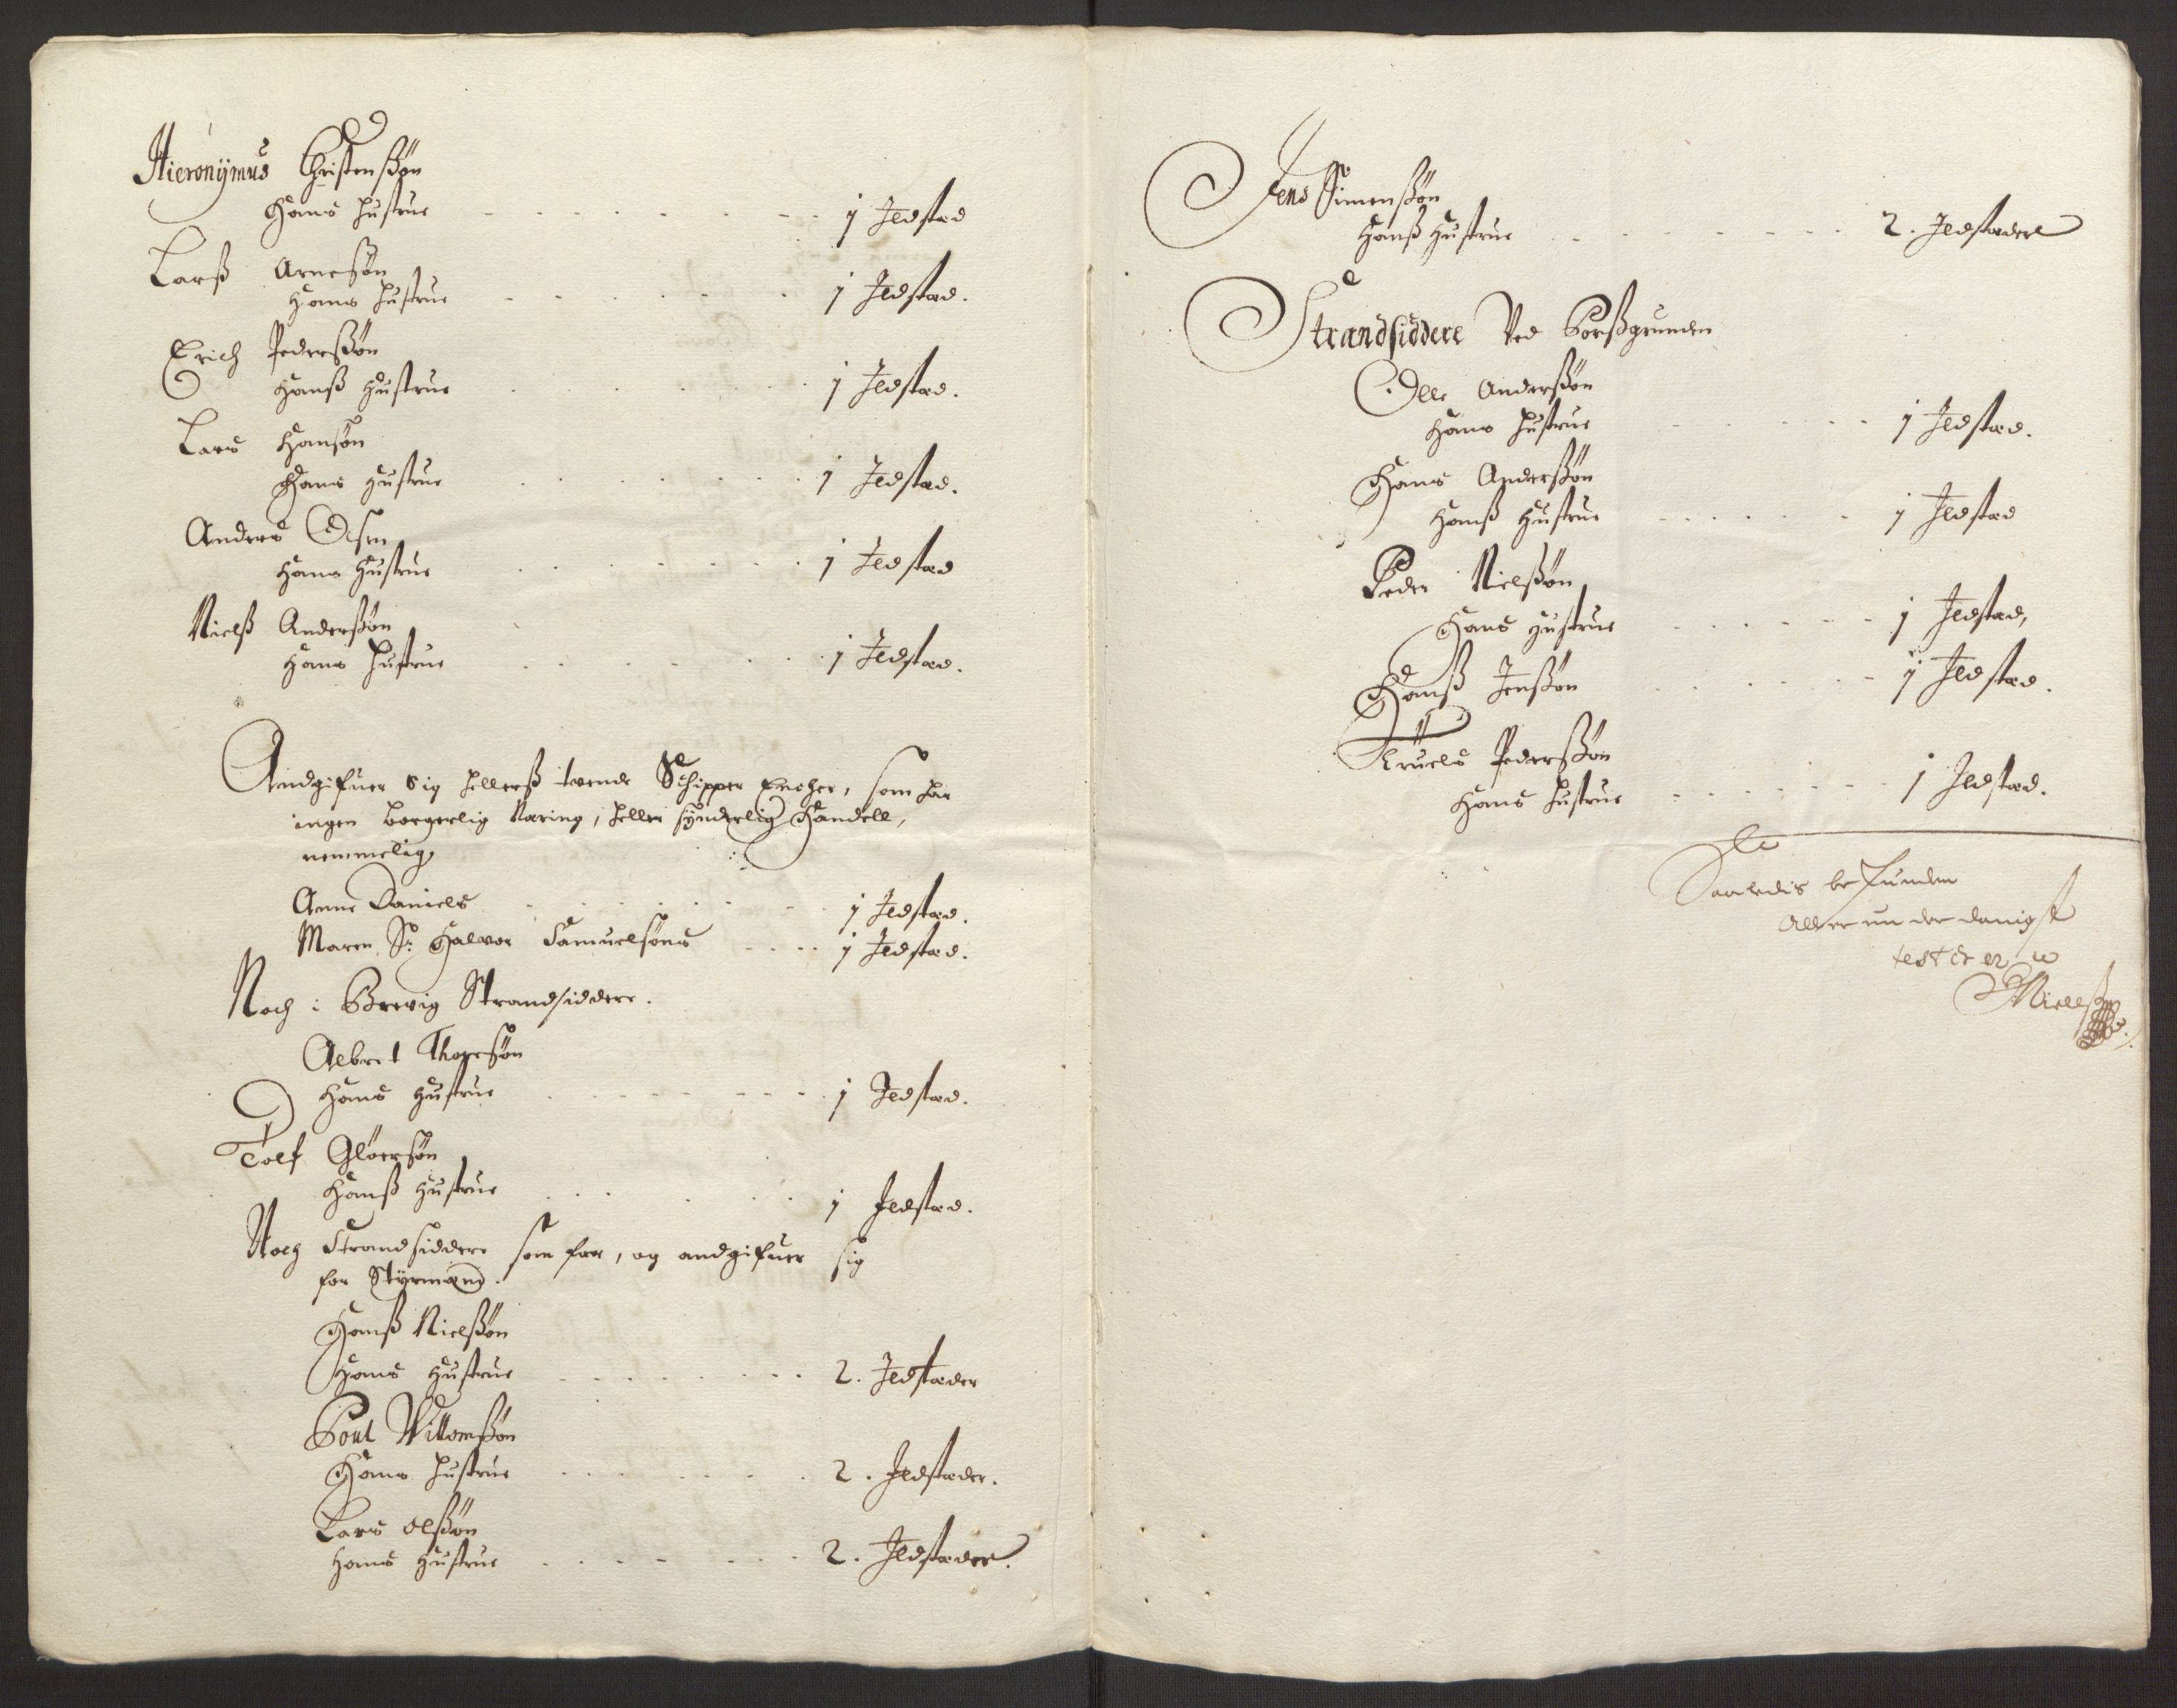 Hieronijmus Christenßøn
Hans Hustrue - - - - - - - - 1 Ildstæd
Larß Arnesøn
Hans Hustrue - - - - - - - 1 Ildstæd.
Erich Pederßøn
Hanß Hustrue - - - - - - - 1 Ildstæd.
Lars Hansøn
Hans Hustrue - - - - - - - 1 Ildstæd.
Anders Olsen
Hans Hustrue - - - - - - - 1 Ildstæd
Nielß Anderßøn
Hans Hustrue - - - - - - - 1 Ildstæd.
Andgifuer sig hellerß tvende Schipper Encher, som har
ingen borgerlig Næring, heller synderlig Handell,
nemmelig,
Anne Daniels - - - - - - 1 Ildstæd.
Maren Sr. Halvor Samuelsøns - - - - 1 Ildstæd.
Noch i Brevig Strandsiddere.
Albret Thoresøn
Hans Hustrue - - - - - - - - 1 Ildstæd.
Tolf Gløersøn
Hanß Hustrue - - - - - - 1 Ildstæd.
Noch Strandsiddere som far, og andgifuer sig
for Styrmænd.
Hanß Nielßøn
Hans Hustrue - - - - - - - - 2. Ildstæder
Poul Willomßøn
Hans Hustrue - - - - - - - 2. Ildstæder.
Lars Olßøn
Hans Hustrue - - - - - - - - 2. Ildstæder.
Jens Simenßøn
Hanß Hustrue - - - - - - - - 2. Ildstæder
Strandsiddere Ved Porßgrunden
Olle Anderßøn
Hans Hustrue - - - - - - 1 Ildstæd.
Hans Anderßøn
Hanß Hustrue - - - - - - 1 Ildstæd
Peder Nielßøn
Hans Hustrue - - - - - - 1 Ildstæd,
Hanß Jenßøn - - - - - - 1 Ildstæd.
Truels Pederßøn
Hans Hustrue - - - - - - 1 Ildstæd.
Saaledis befunden
Allerunderdanigst
testerer
Nielß